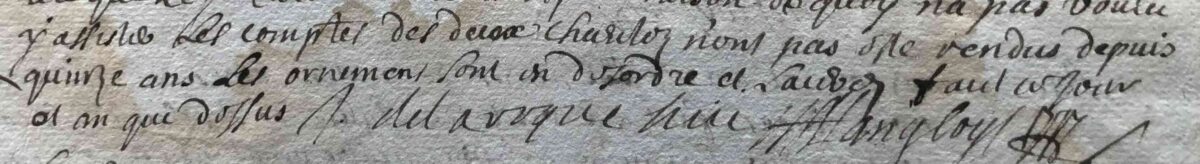 de quoy na pas voulu
y assister Les comptes des deux charitez n'ont pas esté rendus depuis
quinze ans Les ornemens sont en desordre et fait ce jour
et an que dessus delaroque Langloys